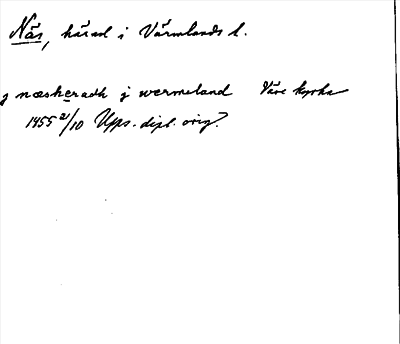 Näs, härad i Värmlands l.
j næsheradh j wermeland Väse kyrka
1455 2/10 Upps. dipl. orig.